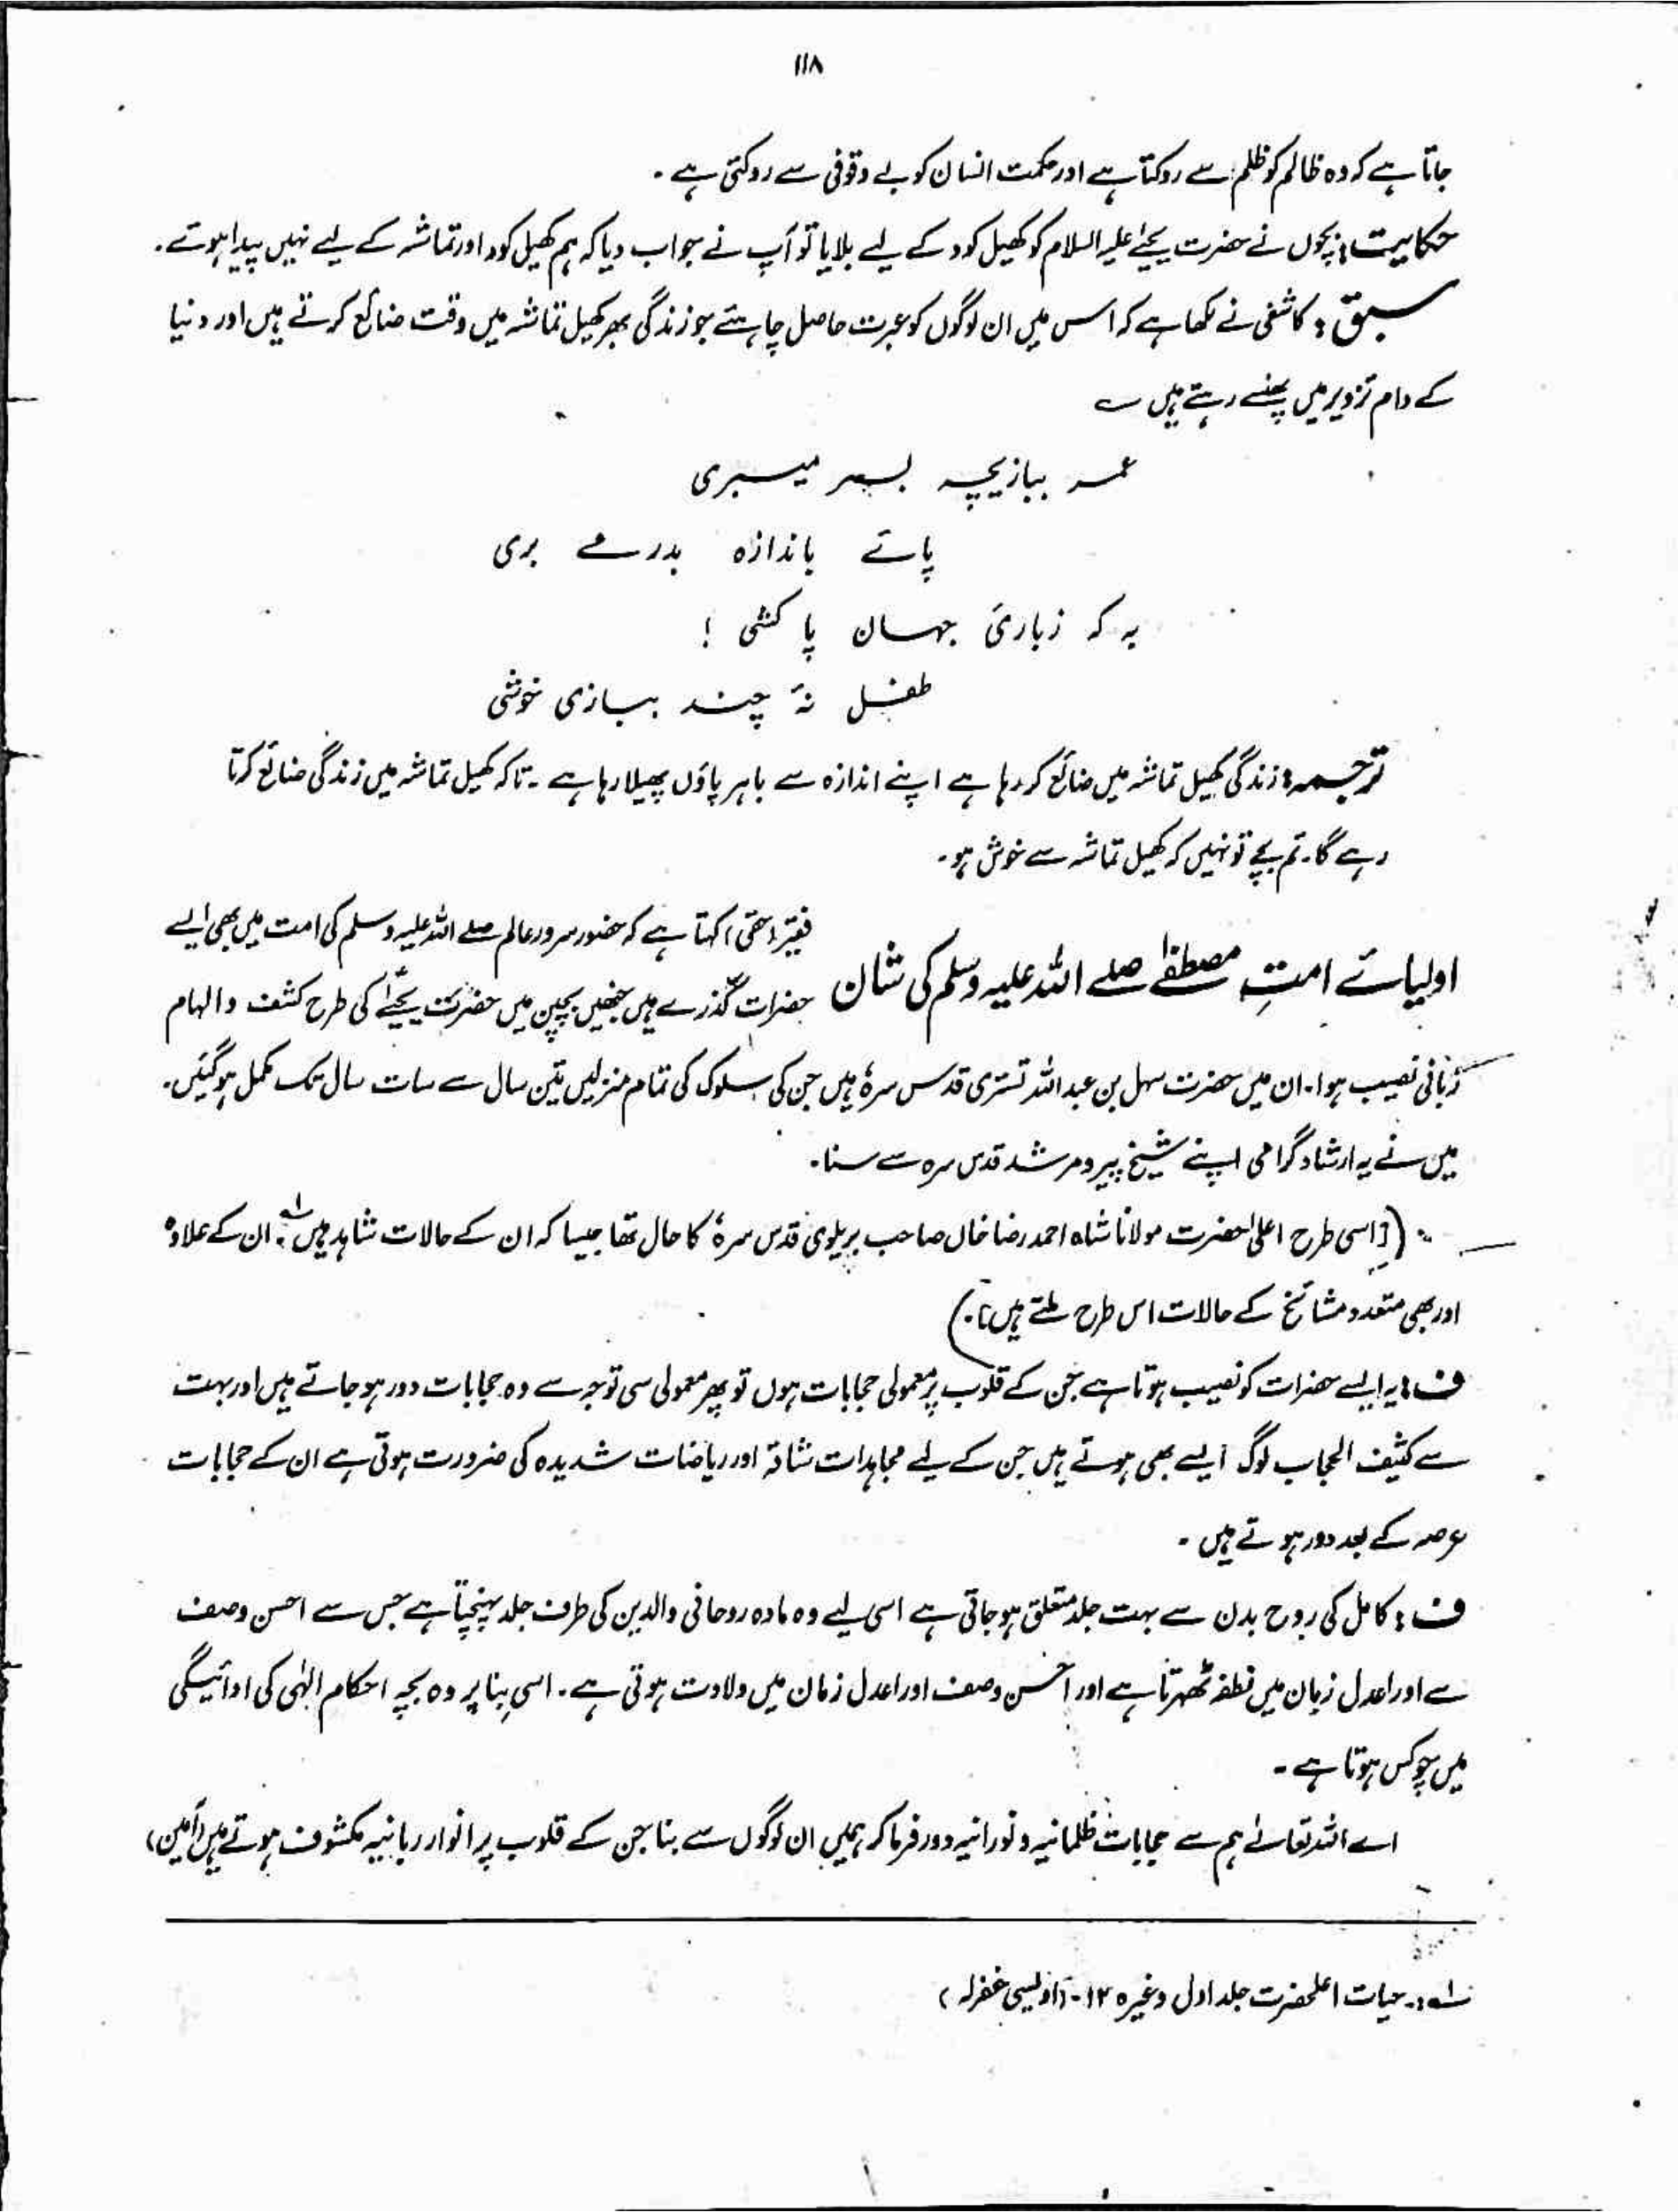 ۱۱۸
جاتا ہے کہ وہ ظالم کو ظلم سے روکتا ہے اور حکمت انسان کو بے وقوفی سے روکتی ہے ۔
حکایت : بچوں نے حضرت یحییٰ علیہ السلام کو کھیل کود کے لیے بلایا تو آپ نے جواب دیا کہ ہم کھیل کود اور تماشہ کے لیے نہیں پیدا ہوئے ۔
سبق : کاشفی نے لکھا ہے کہ اس میں ان لوگوں کو عبرت حاصل چاہئے جو زندگی بھر کھیل تماشہ میں وقت ضائع کرتے ہیں اور دنیا
کے دام تزویر میں پھنسے رہتے ہیں ؎
عمر ببازیچہ بسر میبری
پائے باندازہ بدرمے بری
بہ کہ زبارئ جہان پا کشی !
طفل نۂ چند ببازی خوشی
ترجمہ : زندگی کھیل تماشہ میں ضائع کر رہا ہے اپنے اندازہ سے باہر پاؤں پھیلا رہا ہے ۔ تاکہ کھیل تماشہ میں زندگی ضائع کرتا
رہے گا۔ تم بچے تو نہیں کہ کھیل تماشہ سے خوش ہو ۔
اولیائے امتِ مصطفےٰ صلے اللہ علیہ وسلم کی شان
فقیر (حقی) کہتا ہے کہ حضور سرور عالم صلے اللہ علیہ وسلم کی امت میں بھی ایسے
حضرات گذرے ہیں جنھیں بچپن میں حضرت یحییٰ کی طرح کشف والہام
ربانی نصیب ہوا۔ ان میں حضرت سہل بن عبداللہ تستری قدس سرہٗ ہیں جن کی سلوک کی تمام منزلیں تین سال سے سات سال تک مکمل ہوگئیں۔
میں نے یہ ارشاد گرامی اپنے شیخ پیر ومرشد قدس سرہ سے سنا ۔
([اسی طرح اعلیٰحضرت مولانا شاہ احمد رضا خاں صاحب بریلوی قدس سرہٗ کا حال تھا جیسا کہ ان کے حالات شاہد ہیں ؎۱ ۔ ان کے علاوہ
اور بھی متعدد مشائخ کے حالات اس طرح ملتے ہیں]۔)
ف : یہ ایسے حضرات کو نصیب ہوتا ہے جن کے قلوب پر معمولی حجابات ہوں تو پھر معمولی سی توجہ سے وہ حجابات دور ہو جاتے ہیں اور بہت
سے کثیف الحجاب لوگ ایسے بھی ہوتے ہیں جن کے لیے مجاہدات شاقہ اور ریاضات شدیدہ کی ضرورت ہوتی ہے ان کے حجابات
عرصہ کے بعد دور ہوتے ہیں ۔
ف : کامل کی روح بدن سے بہت جلد متعلق ہو جاتی ہے اسی لیے وہ مادہ روحانی والدین کی طرف جلد پہنچتا ہے جس سے احسن وصف
سے اور اعدل زمان میں نطفہ ٹھہرتا ہے اور احسن وصف اور اعدل زمان میں ولادت ہوتی ہے ۔ اسی بنا پر وہ بچہ احکام الٰہی کی ادائیگی
میں چوکس ہوتا ہے ۔
اے اللہ تعالےٰ ہم سے حجابات ظلمانیہ و نورانیہ دور فرما کر ہمیں ان لوگوں سے بنا جن کے قلوب پر انوار ربانیہ مکشوف ہوتے ہیں (آمین)
؎۱ :۔ حیات اعلٰحضرت جلد اول وغیرہ ۱۲۔ (اویسی غفرلہ)